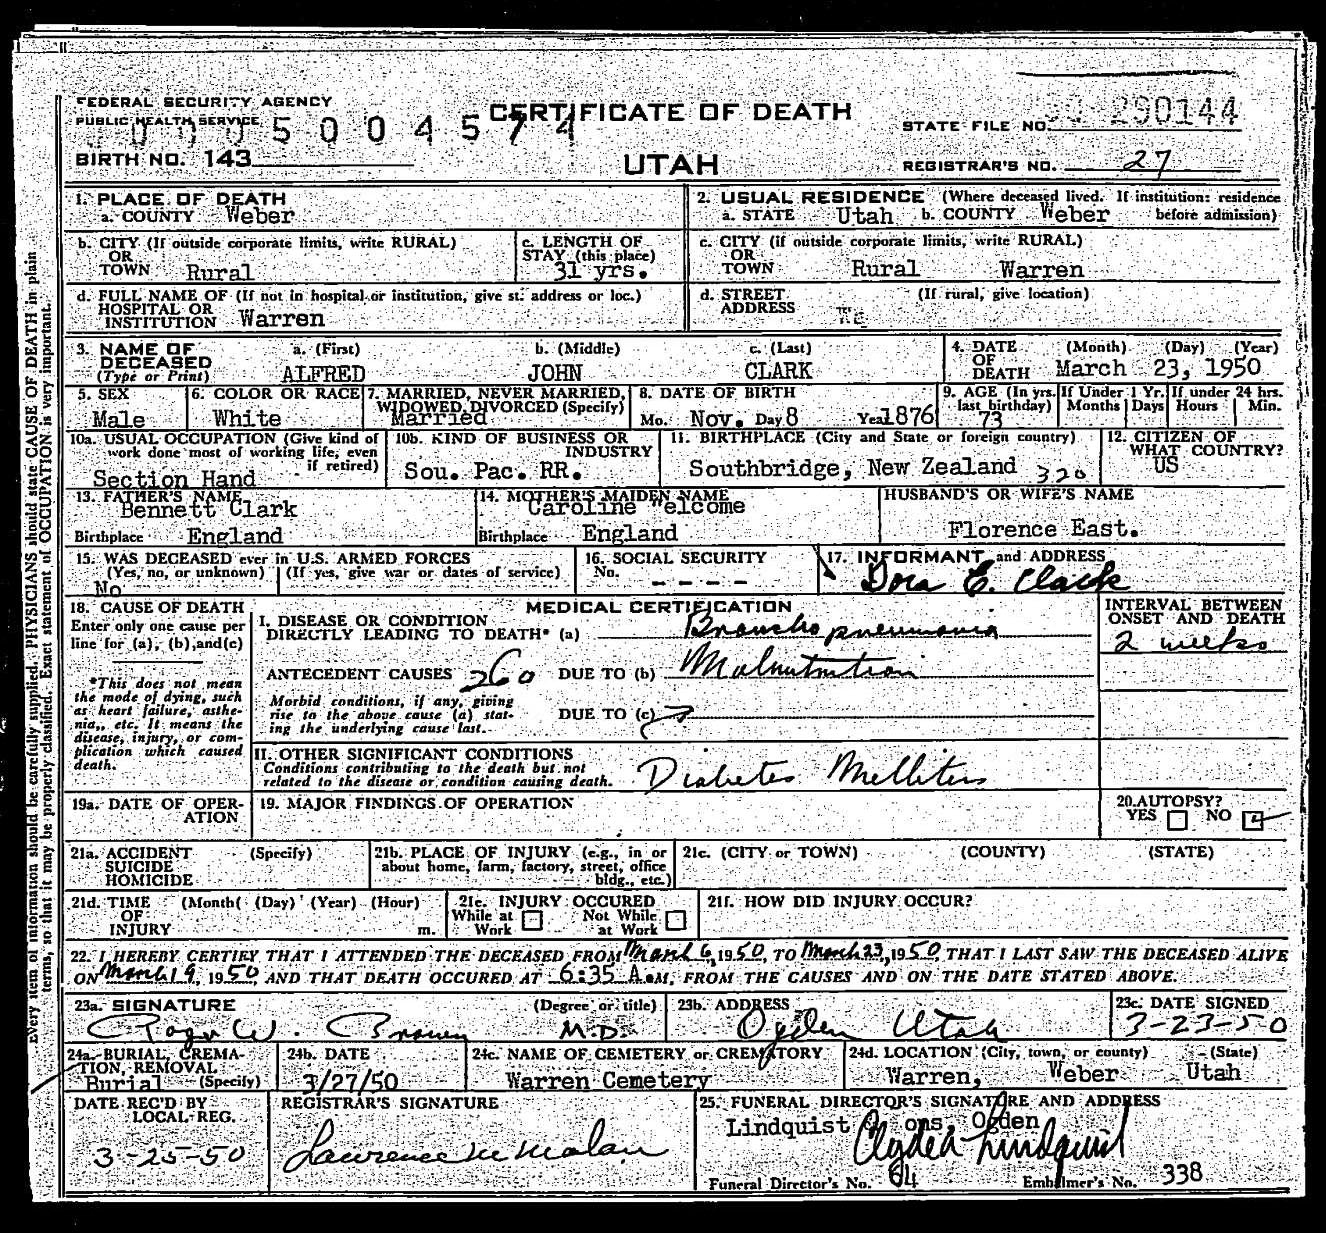 FEDERAL SECURITY AGENCY
PUBLIC HEALTH SERVICE
CERTIFICATE OF DEATH
STATE FILE NO. 290144
0005004574
BIRTH NO. 143
UTAH
REGISTRAR'S NO. 27
1. PLACE OF DEATH
a. COUNTY Weber
2. USUAL RESIDENCE (Where deceased lived. If institution: residence
a. STATE Utah b. COUNTY Weber before admission)
b. CITY (If outside corporate limits, write RURAL)
OR
TOWN Rural
c. LENGTH OF
STAY (this place)
31 yrs.
c. CITY (if outside corporate limits, write RURAL)
OR
TOWN Rural Warren
d. FULL NAME OF (If not in hospital or institution, give st. address or loc.)
HOSPITAL OR
INSTITUTION Warren
d. STREET (If rural, give location)
ADDRESS
3. NAME OF
DECEASED
(Type or Print)
a. (First) b. (Middle) c. (Last)
ALFRED JOHN CLARK
4. DATE (Month) (Day) (Year)
OF
DEATH March 23, 1950
5. SEX
Male
6. COLOR OR RACE
White
7. MARRIED, NEVER MARRIED,
WIDOWED, DIVORCED (Specify)
Married
8. DATE OF BIRTH
Mo. Nov. Day 8 Year 1876
9. AGE (In yrs.
last birthday)
73
If Under 1 Yr.
Months Days
If under 24 hrs.
Hours Min.
10a. USUAL OCCUPATION (Give kind of
work done most of working life, even
if retired)
Section Hand
10b. KIND OF BUSINESS OR
INDUSTRY
Sou. Pac. RR.
11. BIRTHPLACE (City and State or foreign country)
Southbridge, New Zealand 320
12. CITIZEN OF
WHAT COUNTRY?
US
13. FATHER'S NAME
Bennett Clark
Birthplace England
14. MOTHER'S MAIDEN NAME
Caroline Welcome
Birthplace England
HUSBAND'S OR WIFE'S NAME
Florence East.
15. WAS DECEASED ever in U.S. ARMED FORCES
(Yes, no, or unknown) (If yes, give war or dates of service)
No
16. SOCIAL SECURITY
No. - - - -
17. INFORMANT and ADDRESS
Dora E. Clark
18. CAUSE OF DEATH
Enter only one cause per
line for (a), (b), and(c)
*This does not mean
the mode of dying, such
as heart failure, asthe-
nia, etc. It means the
disease, injury, or com-
plication which caused
death.
MEDICAL CERTIFICATION
I. DISEASE OR CONDITION
DIRECTLY LEADING TO DEATH* (a) Bronchopneumonia
INTERVAL BETWEEN
ONSET AND DEATH
2 weeks
ANTECEDENT CAUSES 260 DUE TO (b) Malnutrition
Morbid conditions, if any, giving
rise to the above cause (a) stat-
ing the underlying cause last.
DUE TO (c)
II. OTHER SIGNIFICANT CONDITIONS
Conditions contributing to the death but not
related to the disease or condition causing death.
Diabetes Mellitus
19a. DATE OF OPER-
ATION
19. MAJOR FINDINGS OF OPERATION
20. AUTOPSY?
YES NO
21a. ACCIDENT (Specify)
SUICIDE
HOMICIDE
21b. PLACE OF INJURY (e.g., in or
about home, farm, factory, street, office
bldg., etc.)
21c. (CITY or TOWN) (COUNTY) (STATE)
21d. TIME (Month( (Day) (Year) (Hour)
OF
INJURY m.
21e. INJURY OCCURED
While at Work Not While at Work
21f. HOW DID INJURY OCCUR?
22. I HEREBY CERTIFY THAT I ATTENDED THE DECEASED FROM March 6, 1950, TO March 23, 1950 THAT I LAST SAW THE DECEASED ALIVE
ON March 19, 1950, AND THAT DEATH OCCURED AT 6:35 A.M., FROM THE CAUSES AND ON THE DATE STATED ABOVE.
23a. SIGNATURE (Degree or title)
Roger W. Brown M.D.
23b. ADDRESS
Ogden Utah
23c. DATE SIGNED
3-23-50
24a. BURIAL, CREMA-
TION, REMOVAL
Burial (Specify)
24b. DATE
3/27/50
24c. NAME OF CEMETERY or CREMATORY
Warren Cemetery
24d. LOCATION (City, town, or county) (State)
Warren, Weber Utah
DATE REC'D BY
LOCAL REG.
3-25-50
REGISTRAR'S SIGNATURE
Lawrence M Malan
25. FUNERAL DIRECTOR'S SIGNATURE AND ADDRESS
Lindquist ons, Ogden
Clyde Lindquist
Funeral Director's No. 64 Embalmer's No. 338
Every item of information should be carefully supplied. PHYSICIANS should state CAUSE OF DEATH in plain
terms, so that it may be properly classified. Exact statement of OCCUPATION is very important.